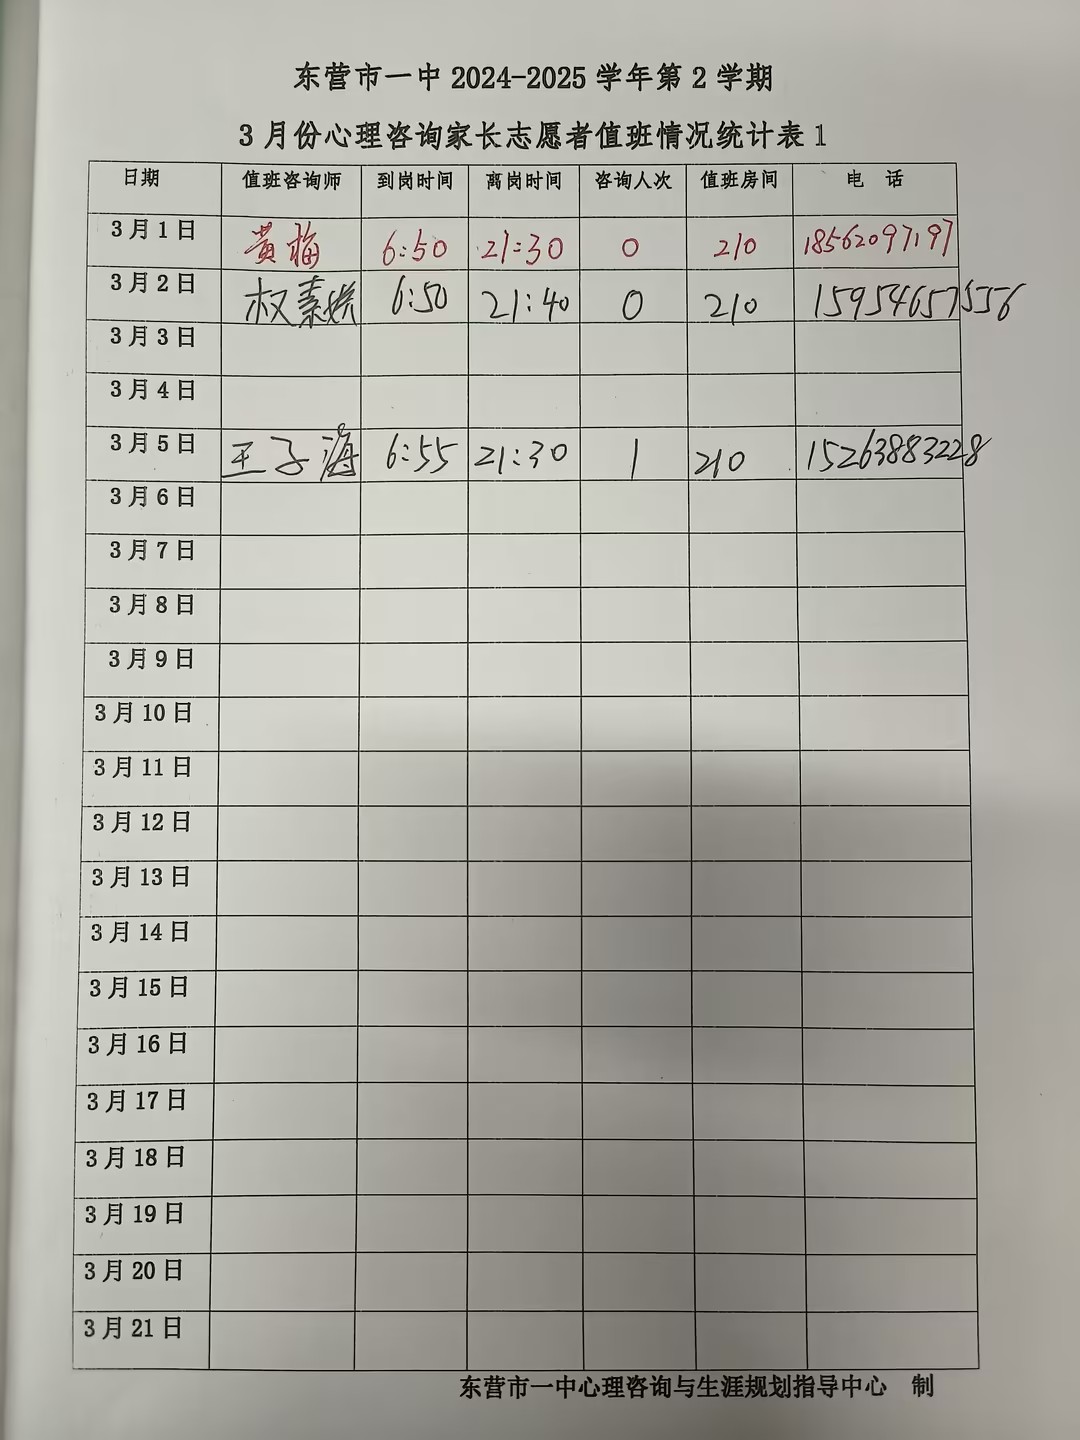 东营市一中 2024-2025 学年第 2 学期
3 月份心理咨询家长志愿者值班情况统计表 1
日期 值班咨询师 到岗时间 离岗时间 咨询人次 值班房间 电 话
3 月 1 日 黄梅 6:50 21:30 0 210 18562097197
3 月 2 日 权素 6:50 21:40 0 210 15954657556
3 月 3 日
3 月 4 日
3 月 5 日 王子海 6:55 21:30 1 210 15263883228
3 月 6 日
3 月 7 日
3 月 8 日
3 月 9 日
3 月 10 日
3 月 11 日
3 月 12 日
3 月 13 日
3 月 14 日
3 月 15 日
3 月 16 日
3 月 17 日
3 月 18 日
3 月 19 日
3 月 20 日
3 月 21 日
东营市一中心理咨询与生涯规划指导中心 制